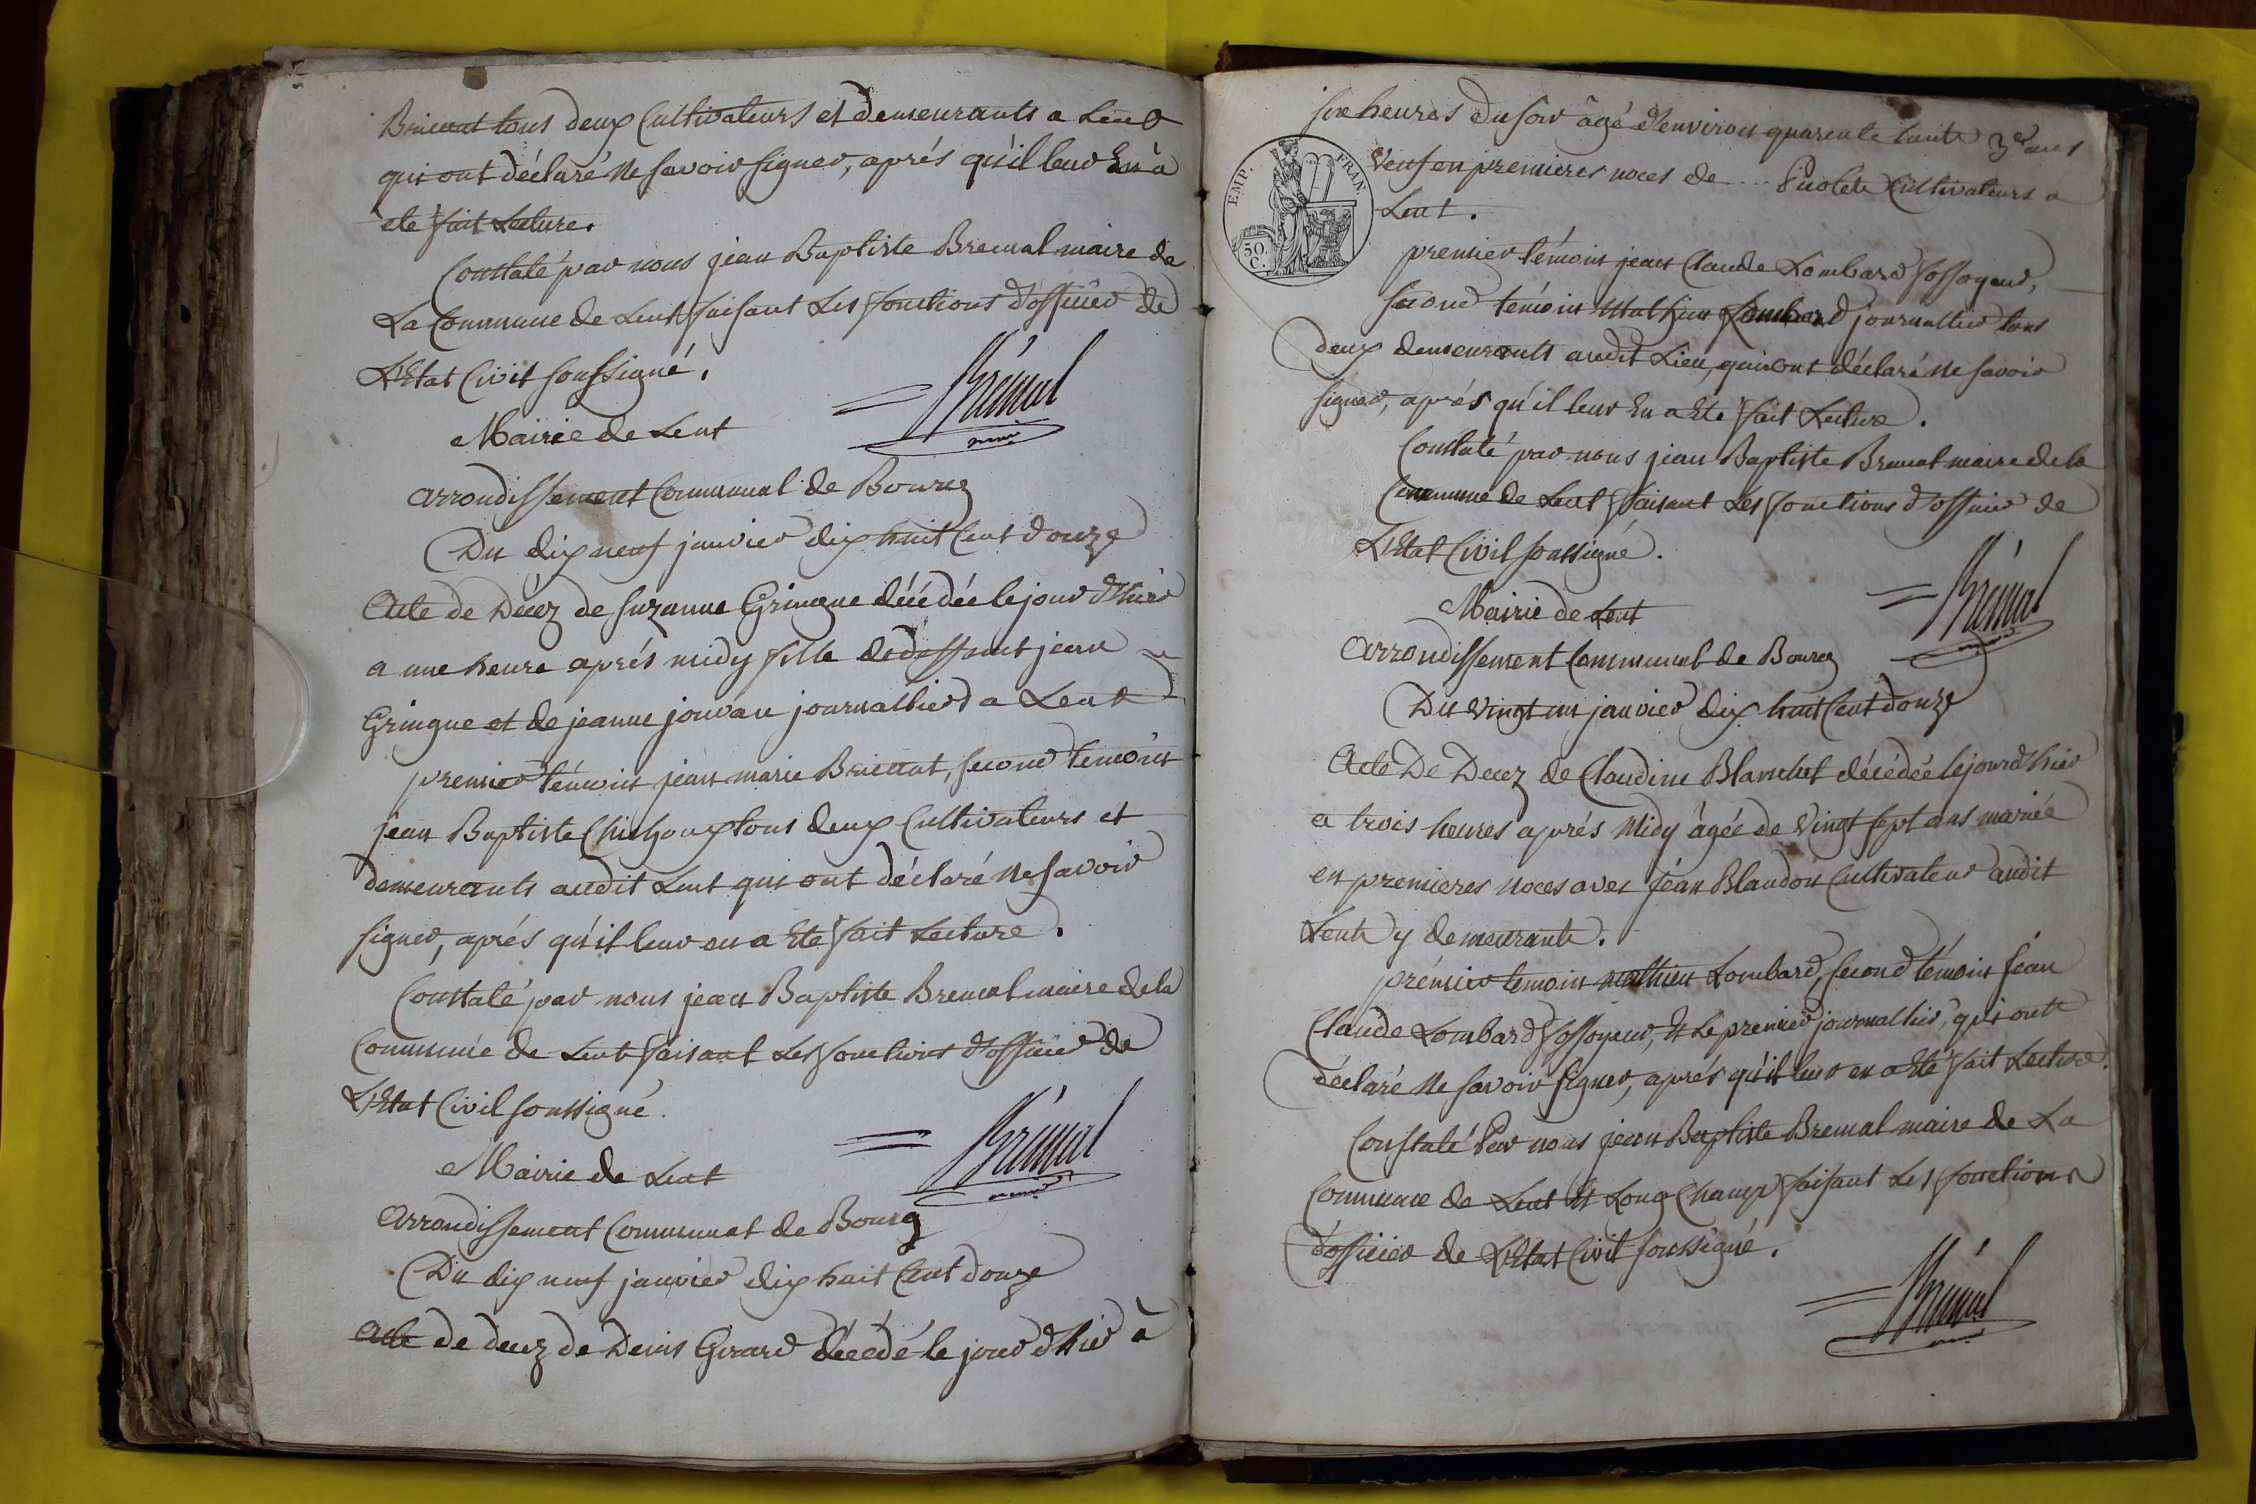 Brienat tous deux Cultivateurs et demeurants a Lent
qui ont déclaré ne savoir signer, aprés qu'il leur En à
ete fait Lecture.
Constaté par nous jean Baptiste Bremal maire de
La Commune de Lent faisant Les fonctions d'officier de
L'Etat Civil soussigné.
Brémal
maire
Mairie de Lent
arrondissement Communal de Bourg
Du dix neuf janvier dix huit Cent douze
Acte de Décez de suzanne Gringue décédée le jour d'hier
a une heure aprés midy fille de deffunt jean
Gringue et de jeanne jouvan journalliers a Lent
premier témoin jean marie Brienat, second temoin
jean Baptiste Chichoux tous deux Cultivateurs et
demeurants audit Lent qui ont déclaré ne savoir
signer, aprés qu'il leur en a Eté fait Lecture.
Constaté par nous jean Baptiste Bremal maire de la
Commune de Lent faisant Les fonctions d'officier de
L'Etat Civil soussigné.
Brémal
maire
Mairie de Lent
Arrondissement Communal de Bourg
Du dix neuf janvier dix huit Cent douze
Acte de decez de Denis Girard décédé le jour d'hier à
six heures du soir âgé d'environ quarente huit ans
Veuf en premieres noces de ... Cultivateurs a
Lent.
EMP. FRAN.
50 C.
premier témoin jean Claude Lombard fossoyeur,
second temoin Mathieu Lombard journallier tous
deux demeurants audit Lieu, qui ont déclaré ne savoir
signer, aprés qu'il leur En a Eté fait Lecture.
Constaté par nous jean Baptiste Bremal maire de la
Commune de Lent faisant Les fonctions d'officier de
L'Etat Civil soussigné.
Brémal
maire
Mairie de Lent
Arrondissement Communal de Bourg
Du vingt un janvier dix huit Cent douze
Acte De Decez de Claudine Blanchet décédée le jour d'hier
a trois heures aprés Midy âgée de Vingt sept ans mariée
en premieres noces avec Jéan Blandon Cultivateur audit
Lent y demeurante.
prémier temoin mathieu Lombard, second témoin Jéan
Claude Lombard fossoyeur, Et Le premier journallier, qui ont
déclaré ne savoir signer, aprés qu'il leur en a Eté fait Lecture.
Constaté Par nous jean Baptiste Bremal maire de La
Commune de Lent Et Long Champ faisant Les fonctions
d'officier de L'Etat Civil soussigné.
Brémal
maire